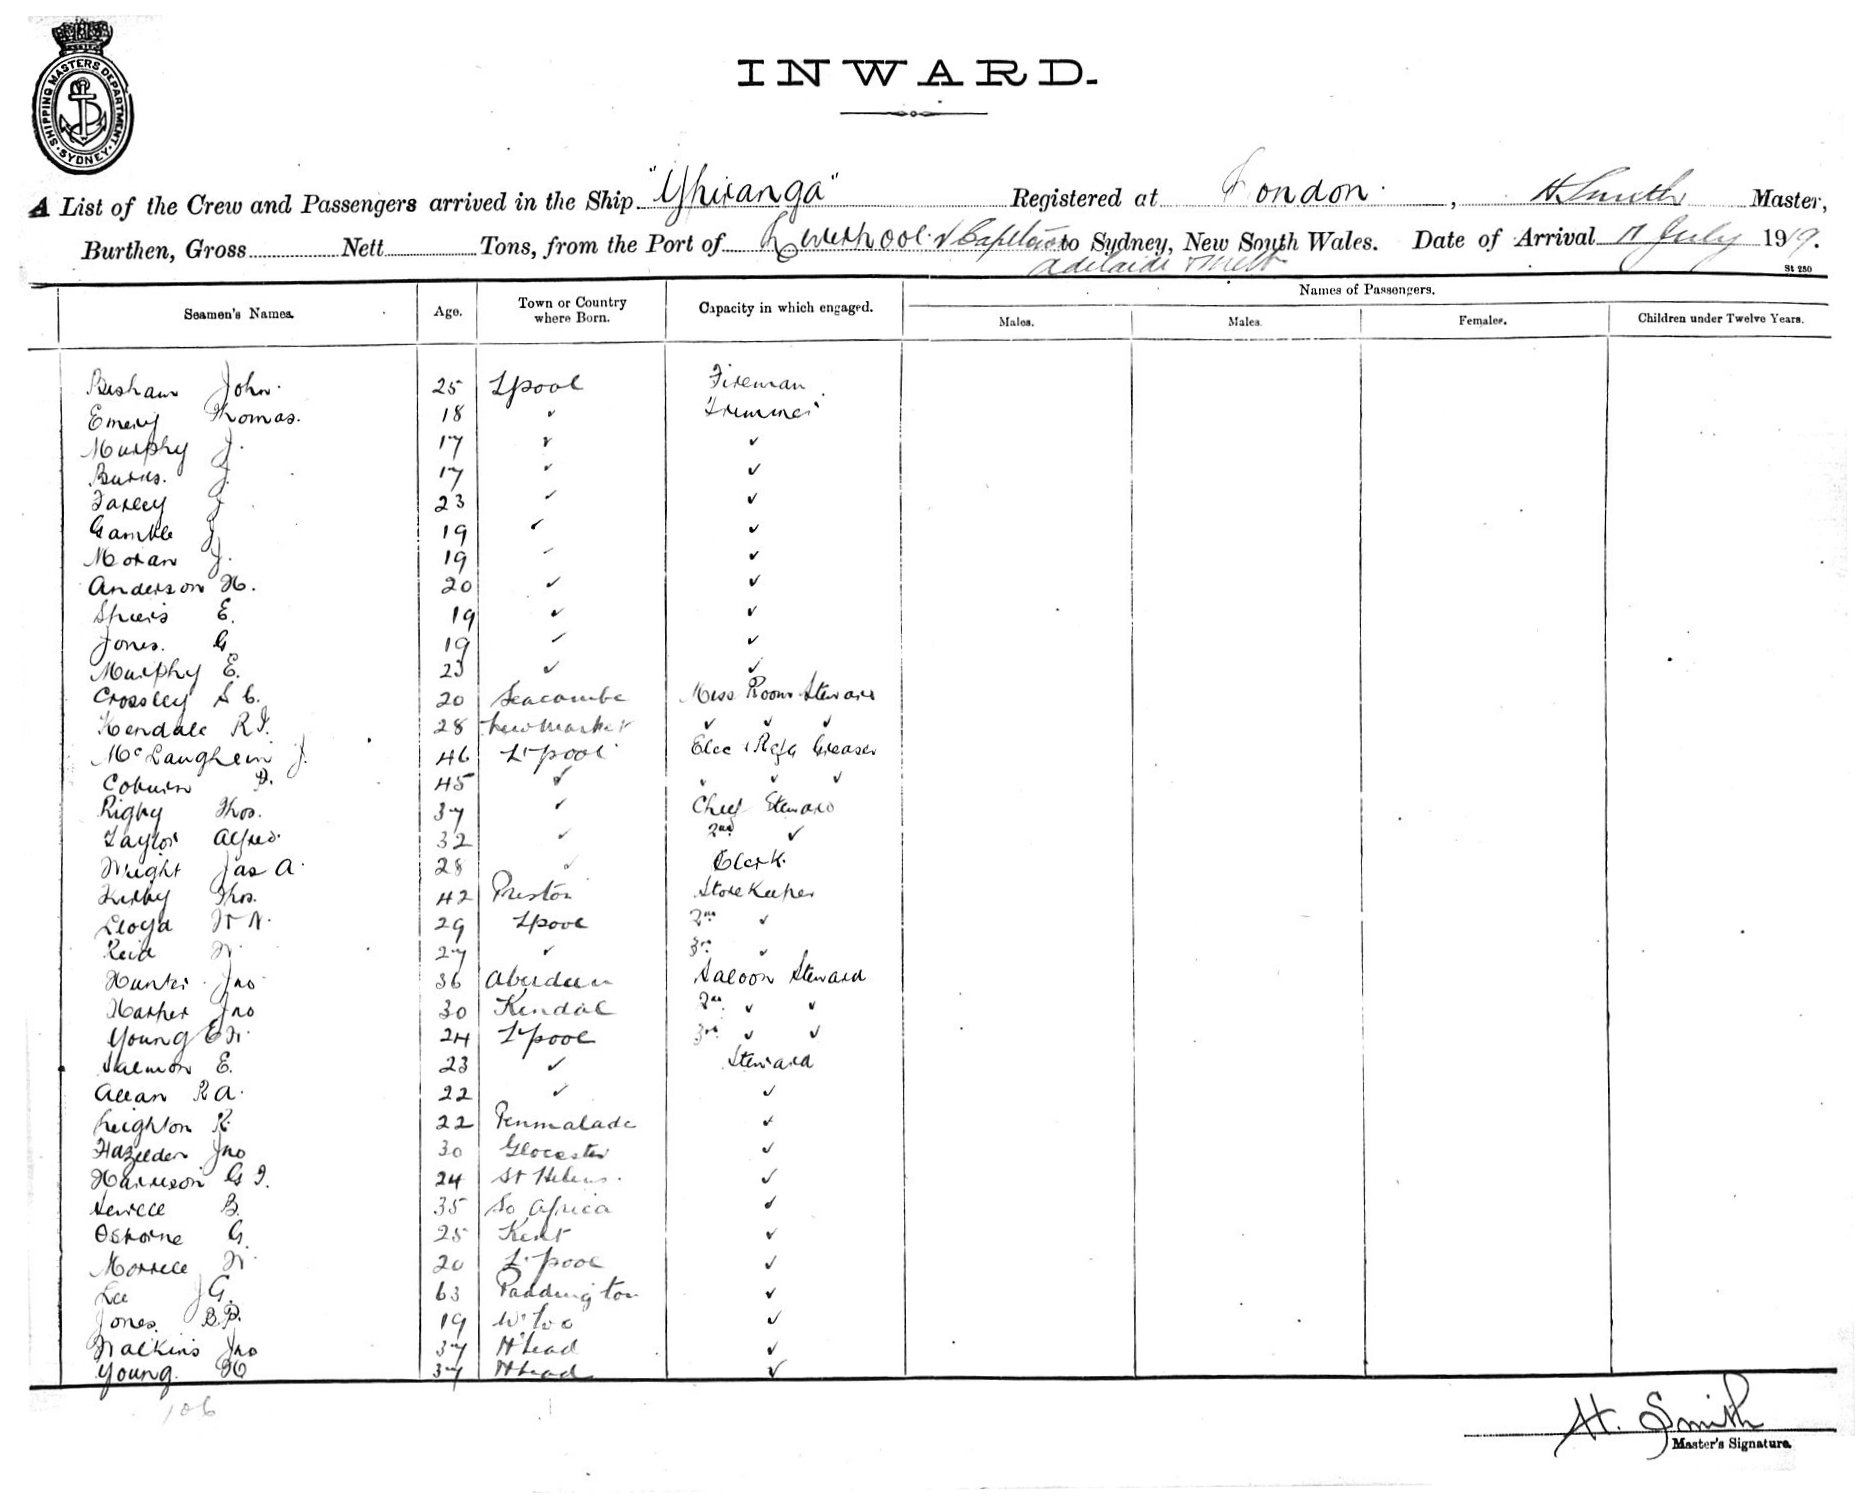 SHIPPING MASTERS DEPARTMENT. SYDNEY
INWARD.
A List of the Crew and Passengers arrived in the Ship "Yhiranga" Registered at London, H Smith Master,
Burthen, Gross Nett Tons, from the Port of Liverpool & Capetown to Sydney, New South Wales. Date of Arrival 11 July 1919.
Adelaide & Melb
St 250
Seamen's Names. Age. Town or Country where Born. Capacity in which engaged. Names of Passengers.
Males. Males. Females. Children under Twelve Years.
John 25 L'pool Fireman
Emery Thomas. 18 " Trimmer
Murphy J. 17 " "
Burns. J. 17 " "
Farley J 23 " "
Gamble J 19 " "
Moran J. 19 " "
Anderson H. 20 " "
Spiers E. 19 " "
Jones. G 19 " "
Murphy E. 23 " "
Crossley S C. 20 Seacombe Mess Room Steward
Kendall R J. 28 Newmarket " " "
McLaughlin J. 46 L'pool Elec & Refg Greaser
Coburn D. 45 " " " "
Rigby Thos. 37 " Chief Steward
Taylor Alfred. 32 " 2nd "
Wright Jas A. 28 " Clerk.
Kirby Thos. 42 Preston Storekeeper
Lloyd W N. 29 L'pool 2nd "
Reid W. 27 " 3rd "
Hunter Jno 36 Aberdeen Saloon Steward
Harper Jno 30 Kendal 2nd " "
Young E W. 24 L'pool 3rd " "
Salmon E. 23 " Steward
Allan R A. 22 " "
Leighton R. 22 Penmalade "
Hazelden Jno 30 Glocester "
Harrison G J. 24 St Helens. "
Sewell B. 35 So Africa "
Osborne G. 25 Kent "
Morrell W. 20 L'pool "
Lee J G. 63 Paddington "
Jones. B.P. 19 W'loo "
Watkins Jno 37 B'head "
Young. H 37 B'head "
106
H. Smith
Master's Signature.